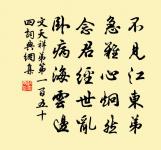 不見江東弟
急難心炯然
念君經世亂
卧病海雲邊
文天祥弟第一百五十
四詞典網集